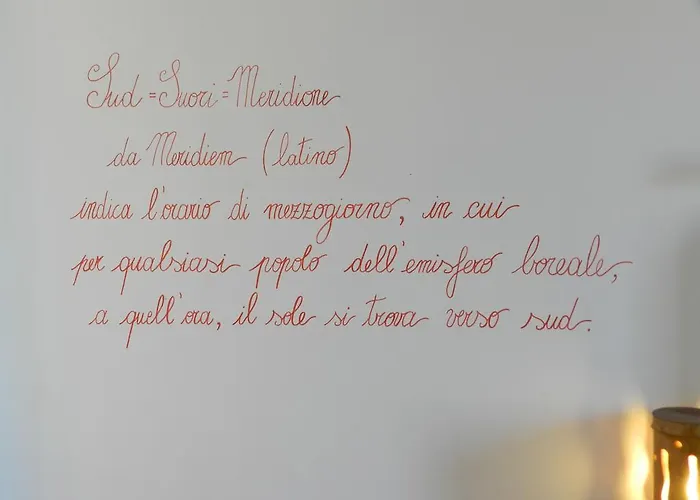 Sud = Suori = Meridione
da Meridiem (latino)
indica l'orario di mezzogiorno, in cui
per qualsiasi popolo dell'emisfero boreale,
a quell'ora, il sole si trova verso sud.